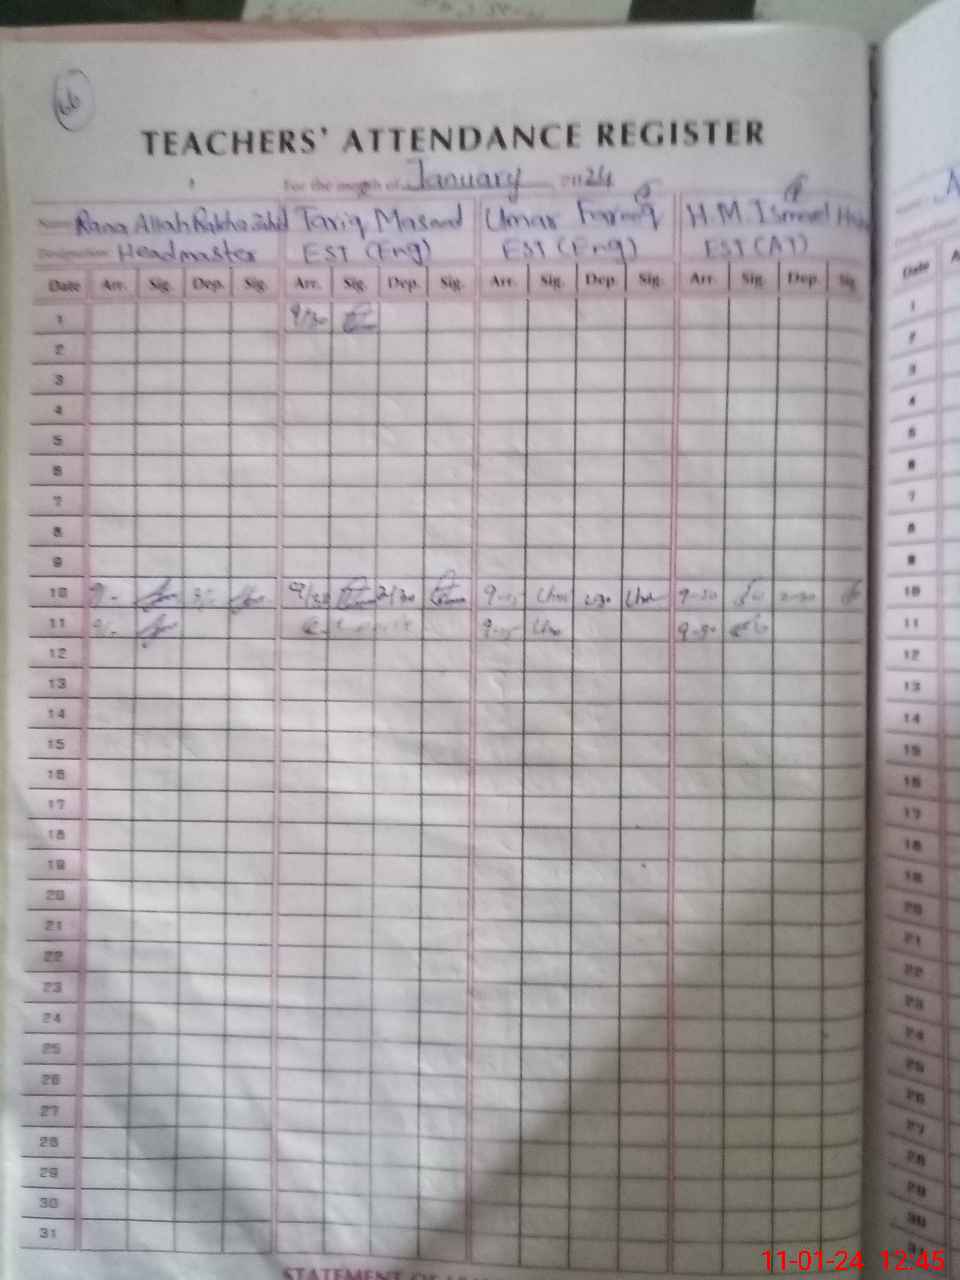 66
TEACHERS' ATTENDANCE REGISTER
For the month of January 2024
Name Rana Allah Rakha Zahid Tariq Masood Umar Farooq H.M. Ismaeel
Designation Headmaster EST (Eng) EST (Eng) EST (AT)
Date Arr. Sig. Dep. Sig. Arr. Sig. Dep. Sig. Arr. Sig. Dep. Sig. Arr. Sig. Dep. Sig. Date
1 9/30 1
2 2
3 3
4 4
5 5
6 6
7 7
8 8
9 9
10 9/30 2/30 2-30 9-30 2-30 10
11 9-30 11
12 12
13 13
14 14
15 15
16 16
17 17
18 18
19 19
20 20
21 21
22 22
23 23
24 24
25 25
26 26
27 27
28 28
29 29
30 30
31 31
STATEMENT OF
11-01-24 12:45